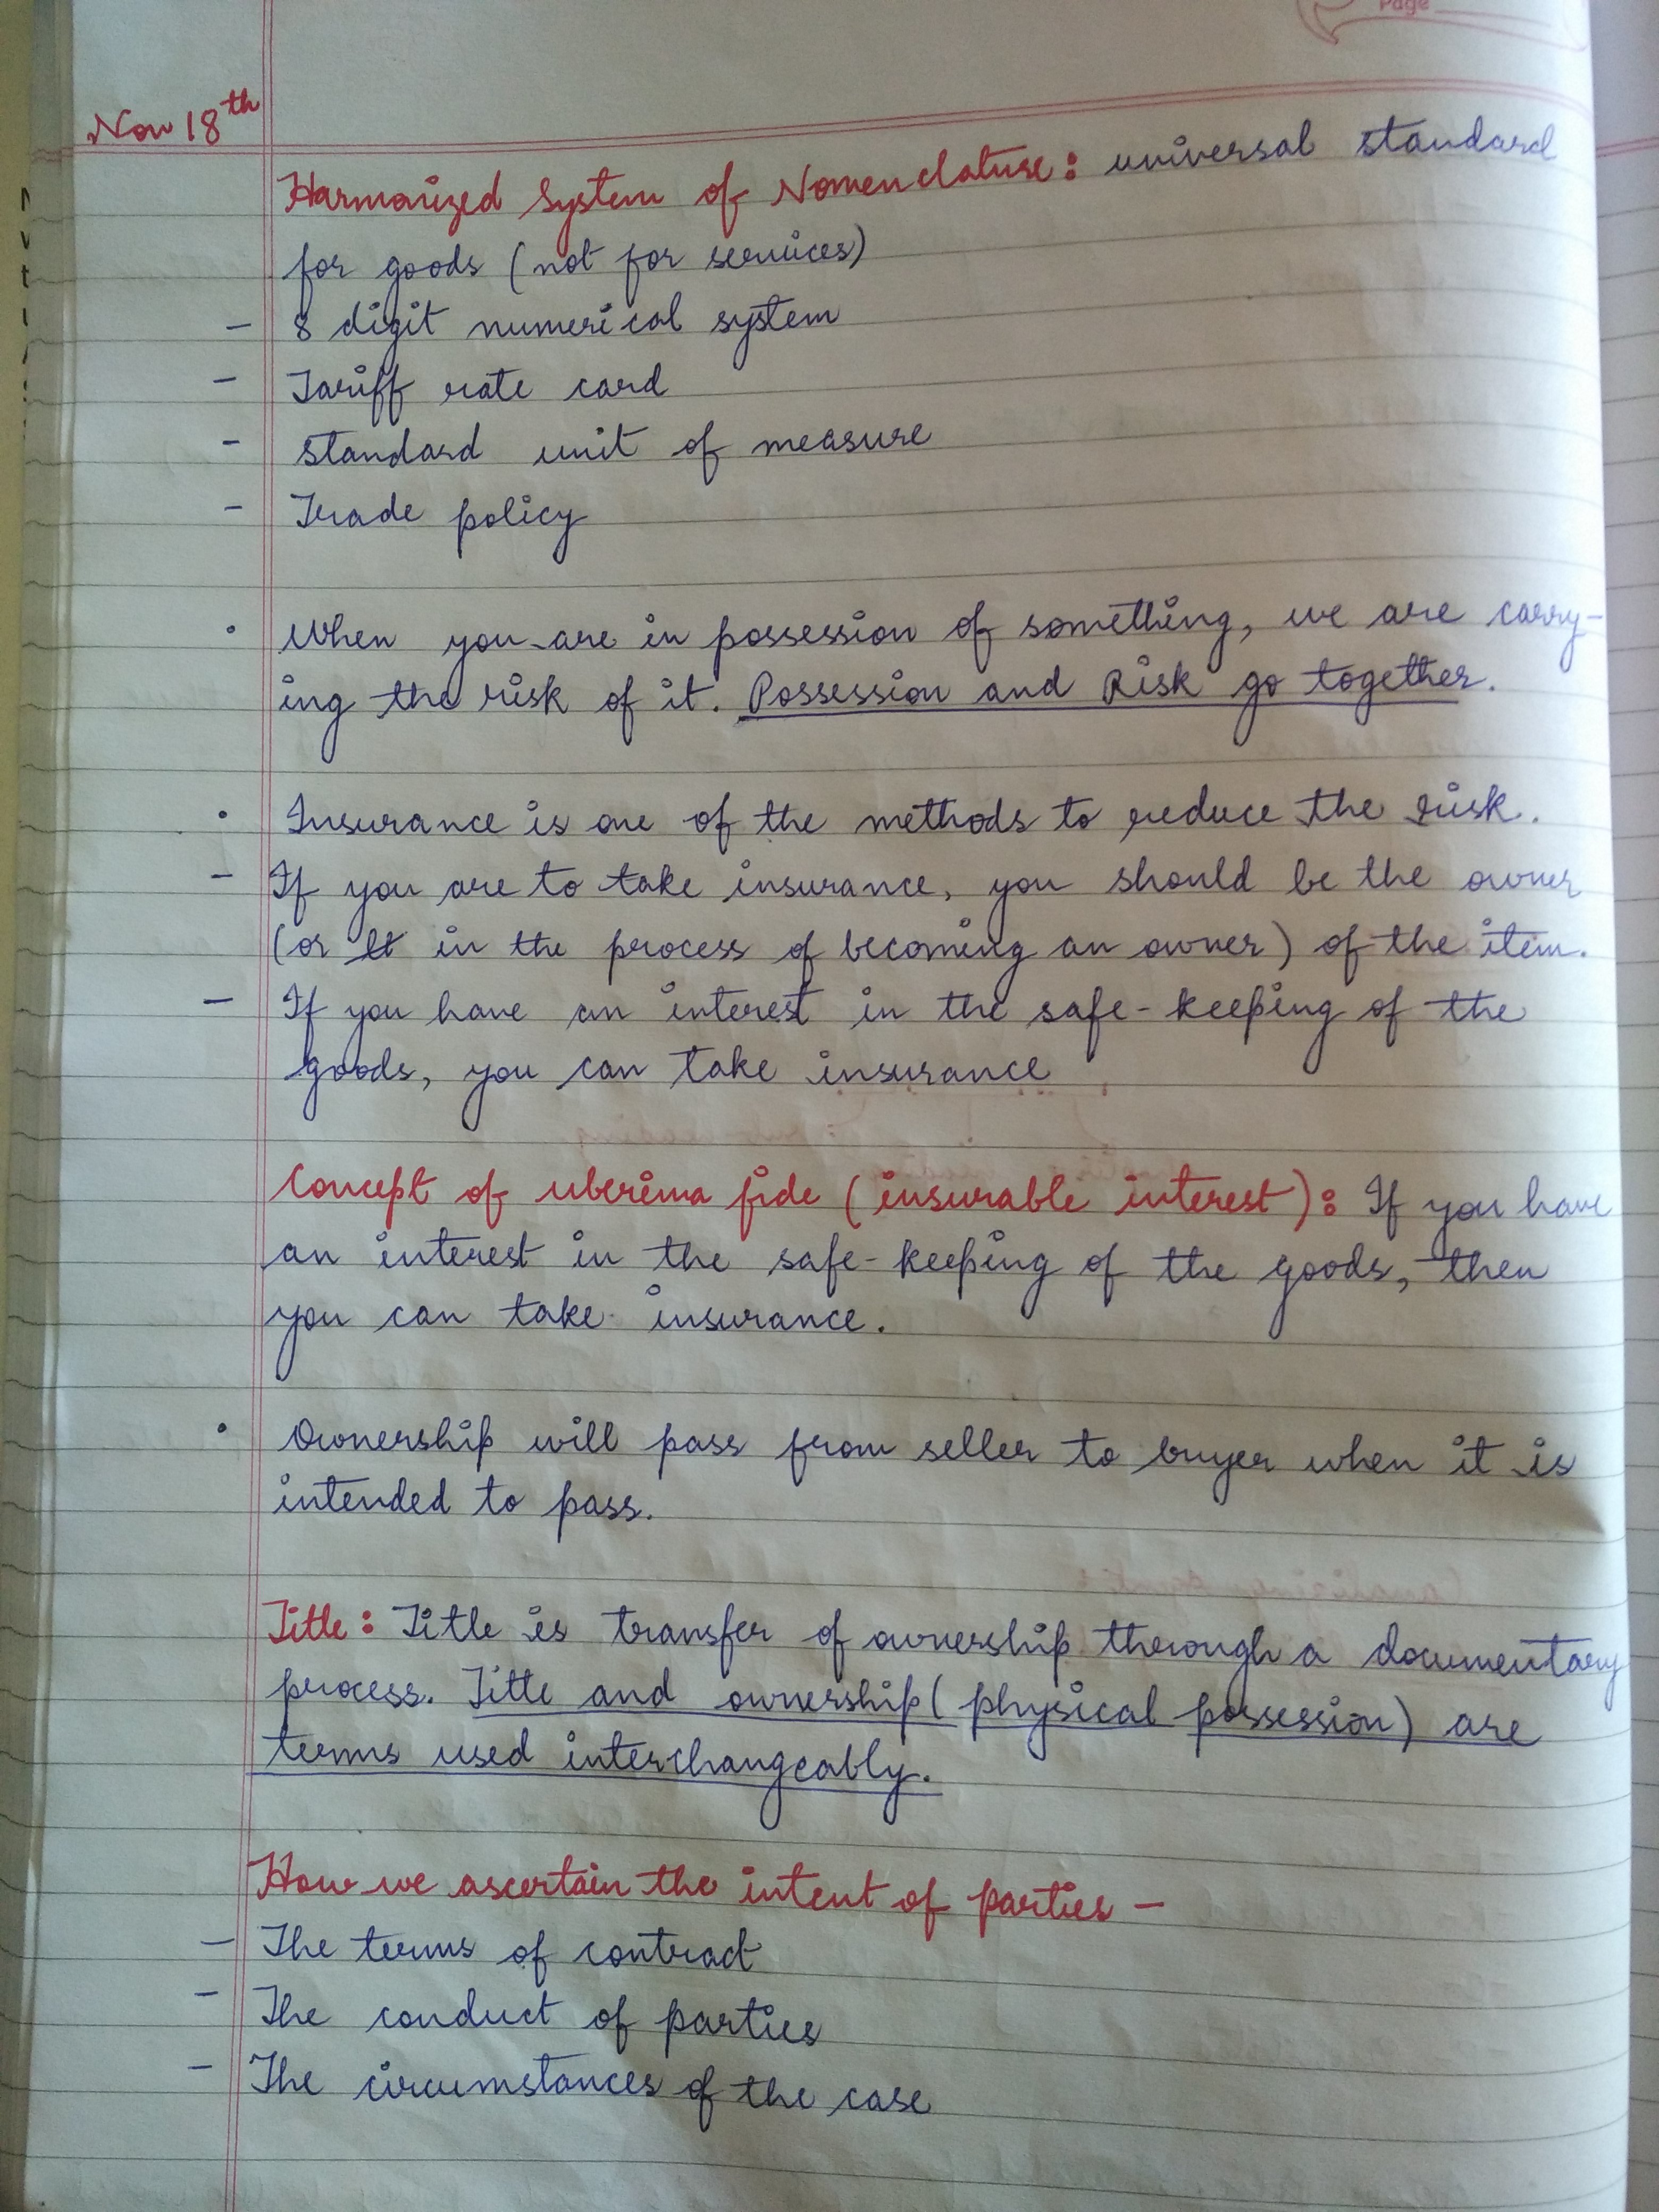 Page
Nov 18th
Harmonized System of Nomenclature: universal standard
for goods (not for services)
- 8 digit numerical system
- Tariff rate card
- Standard unit of measure
- Trade policy
• When you are in possession of something, we are carry-
ing the risk of it. Possession and Risk go together.
• Insurance is one of the methods to reduce the risk.
- If you are to take insurance, you should be the owner
(or in the process of becoming an owner) of the item.
- If you have an interest in the safe-keeping of the
goods, you can take insurance
Concept of uberima fide (insurable interest): If you have
an interest in the safe-keeping of the goods, then
you can take insurance.
• Ownership will pass from seller to buyer when it is
intended to pass.
Title: Title is transfer of ownership through a documentary
process. Title and ownership (physical possession) are
terms used interchangeably.
How we ascertain the intent of parties -
- The terms of contract
- The conduct of parties
- The circumstances of the case